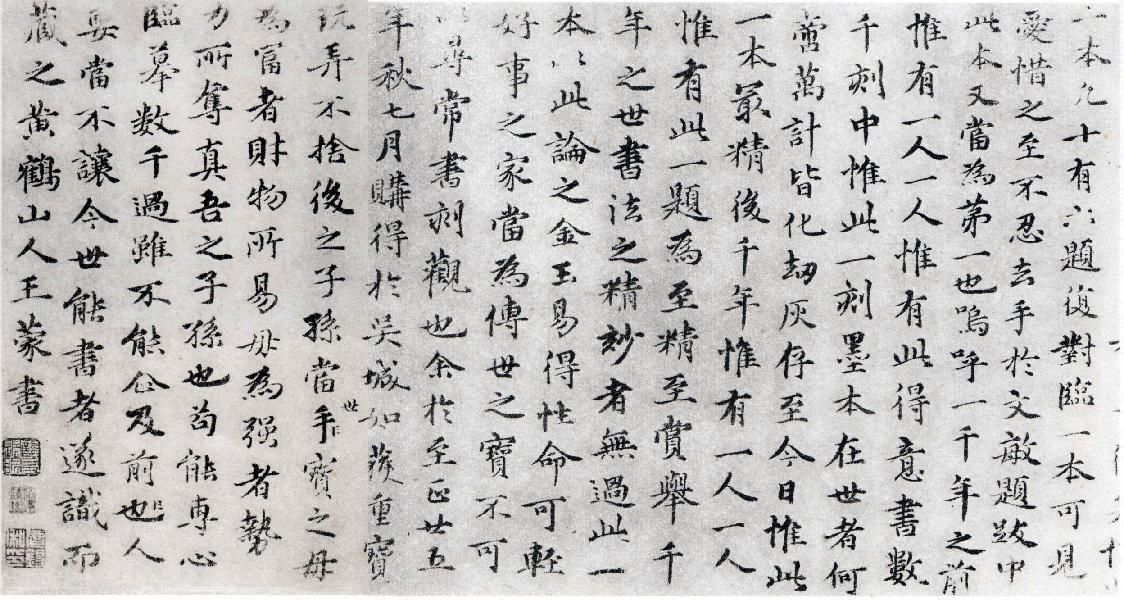 一本凡十有六題復對臨一本可見
愛惜之至不忍去手於文敏題跋中
此本又當為苐一也嗚呼一千年之前
惟有一人一人惟有此得意書數
千刻中惟此一刻墨本在世者何
啻萬計皆化劫灰存至今日惟此
一本最精後千年惟有一人一人
惟有此一題為至精至賞舉千
年之世書法之精妙者無過此一
本以此論之金玉易得性命可輕
好事之家當為傳世之寶不可
以尋常書刻觀也余於至正廿五
年秋七月購得於吳城如獲重寶
玩弄不捨後之子孫當手世寶之毋
為富者財物所易毋為强者勢
力所奪真吾之子孫也苟能專心
臨摹數千過雖不能企及前也人
要當不讓今世能書者遂識而
藏之黄鶴山人王蒙書